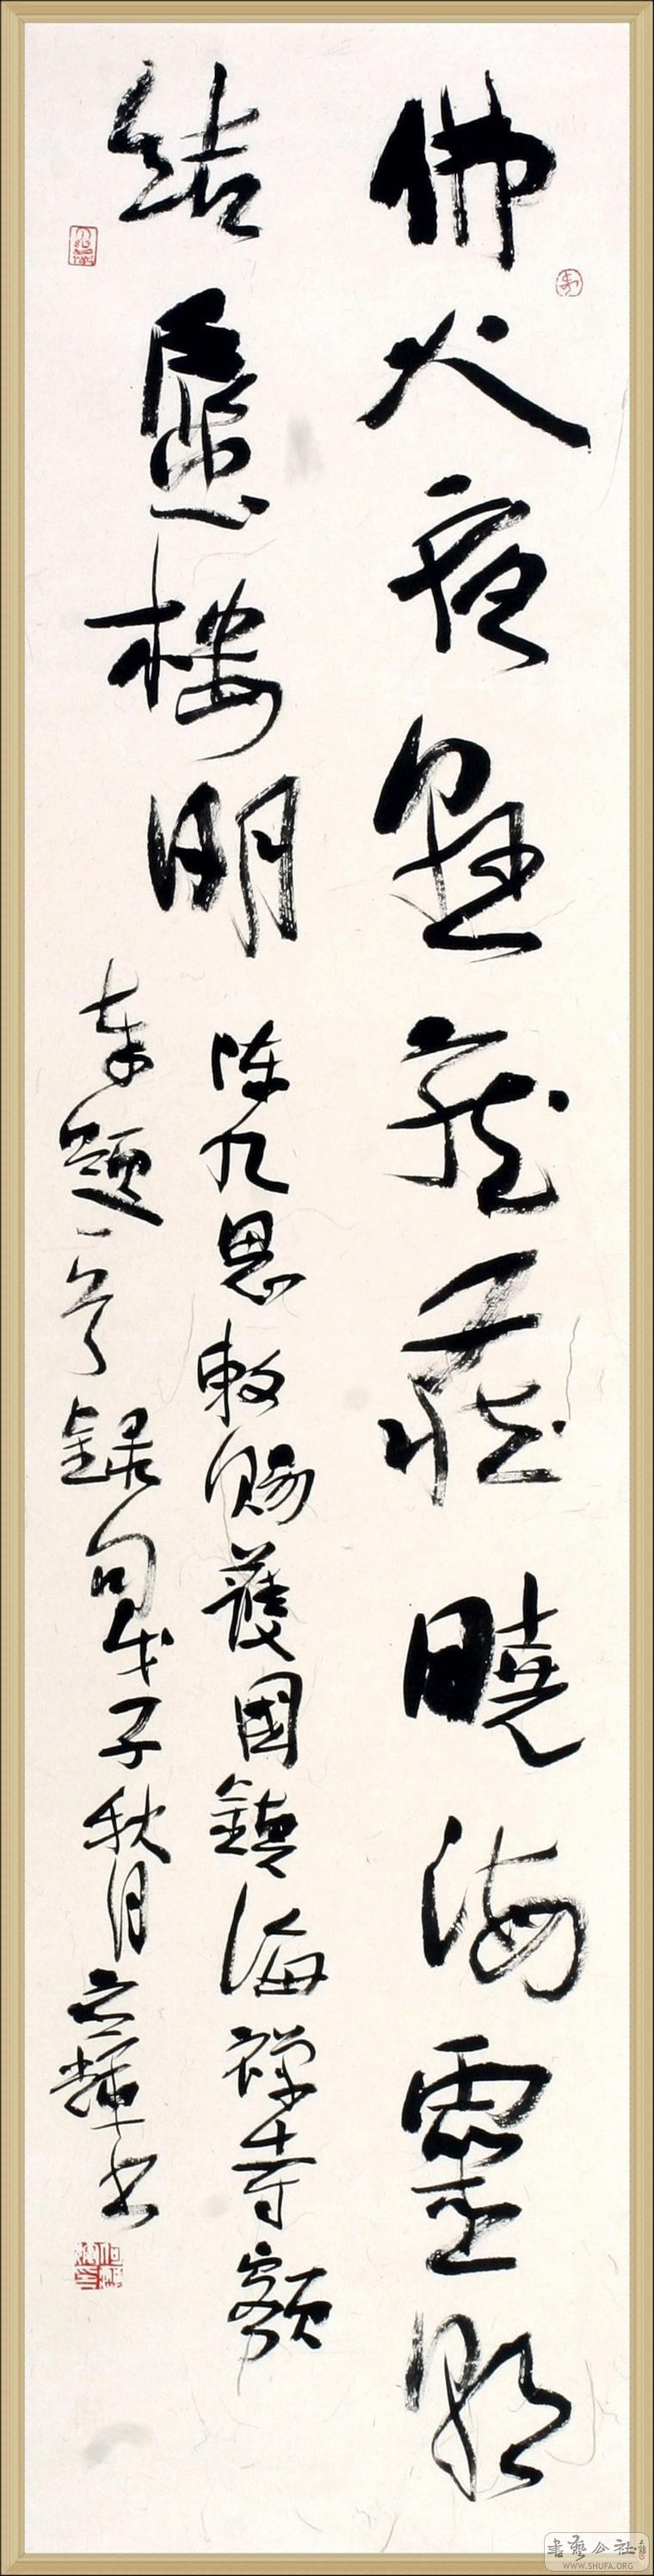 佛火夜懸龍藏曉海靈朝
結蜃樓明
陳九思敕賜護國鎮海禅寺額
奉題一首錄句戊子秋月立輝書
書藝公社
WWW.SHUFA.ORG